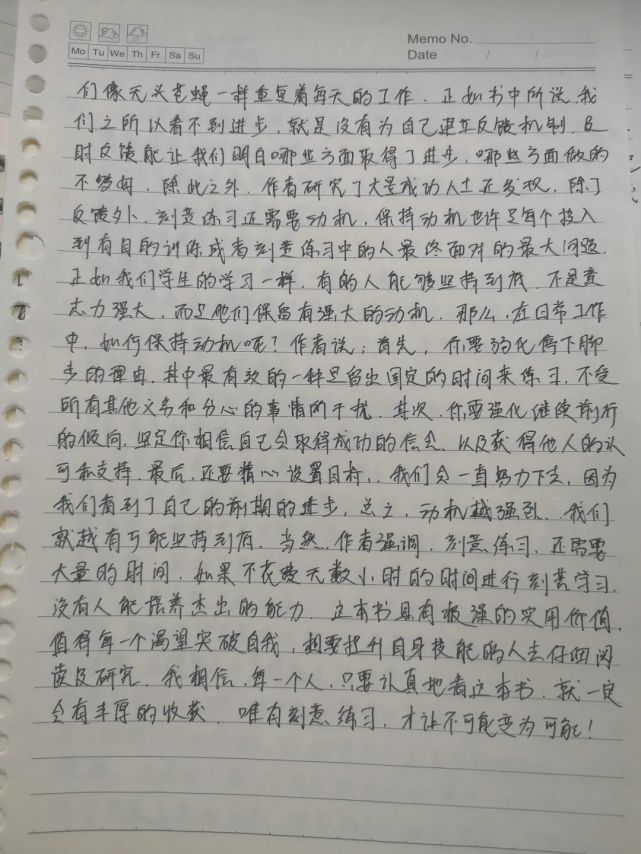 Memo No.
Mo Tu We Th Fr Sa Su
Date / /
们像无头苍蝇一样重复着每天的工作.正如书中所说,我
们之所以看不到进步,就是没有为自己建立反馈机制.及
时反馈能让我们明白哪些方面取得了进步,哪些方面做的
不够好.除此之外.作者研究了大量成功人士还发现,除了
反馈外,刻意练习还需要动机,保持动机也许是每个投入
到有目的训练或者刻意练习中的人最终面对的最大问题.
正如我们学生的学习一样.有的人能够坚持到底.不是意
志力强大,而是他们保留有强大的动机.那么,在日常工作
中,如何保持动机呢?作者说:首先,你要弱化停下脚
步的理由.其中最有效的一种是留出固定的时间来练习.不受
所有其他义务和分心的事情的干扰.其次.你要强化继续前行
的倾向.坚定你相信自己会取得成功的信念.以及获得他人的认
可和支持.最后.还要精心设置目标..我们会一直努力下去,因为
我们看到了自己的前期的进步,总之,动机越强烈..我们
就越有可能坚持到底.当然.作者强调.刻意练习.还需要
大量的时间.如果不花费无数小时的时间进行刻苦学习.
没有人能培养杰出的能力.这本书具有极强的实用价值.
值得每一个渴望突破自我,想要提升自身技能的人去仔细阅
读及研究.我相信.每一个人.只要认真地看这本书.就一定
会有丰厚的收获.唯有刻意练习.才让不可能变为可能!